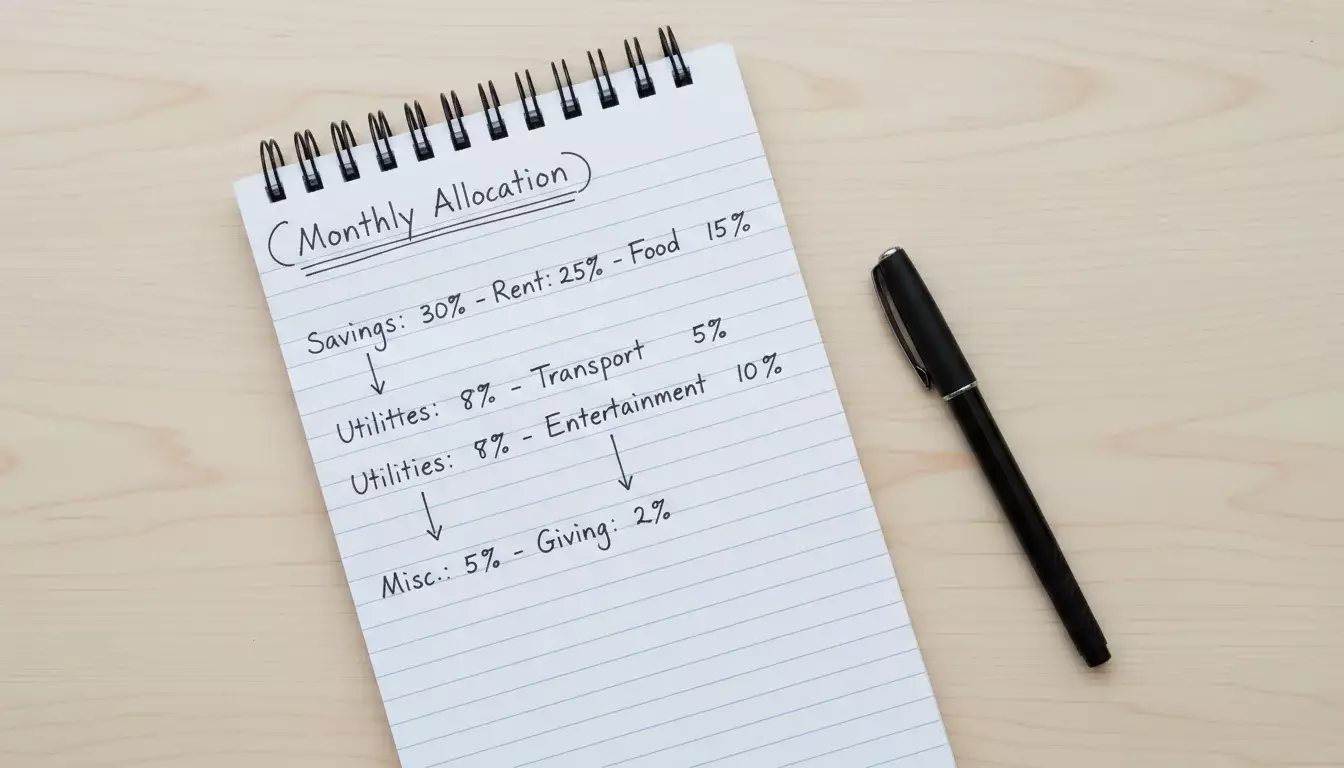 (Monthly Allocation)
Savings: 30% - Rent: 25% - Food 15%
Utilittes: 8% - Transport 5%
Utilities: 8% - Entertainment 10%
Misc.: 5% - Giving: 2%